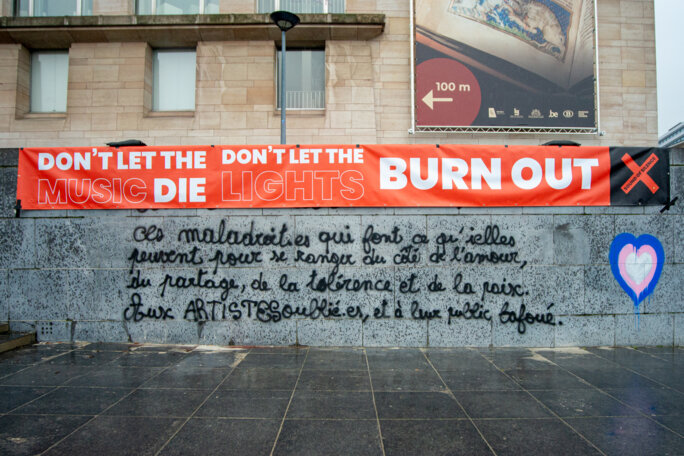 100 m
.be
DON'T LET THE MUSIC DIE
DON'T LET THE LIGHTS
BURN OUT
Ces maladroit.es qui font ce qu'ielles
peuvent pour se ranger du côté de l'amour,
du partage, de la tolérence et de la paix.
Aux ARTISTES oublié.es, et à leur public bafoué.